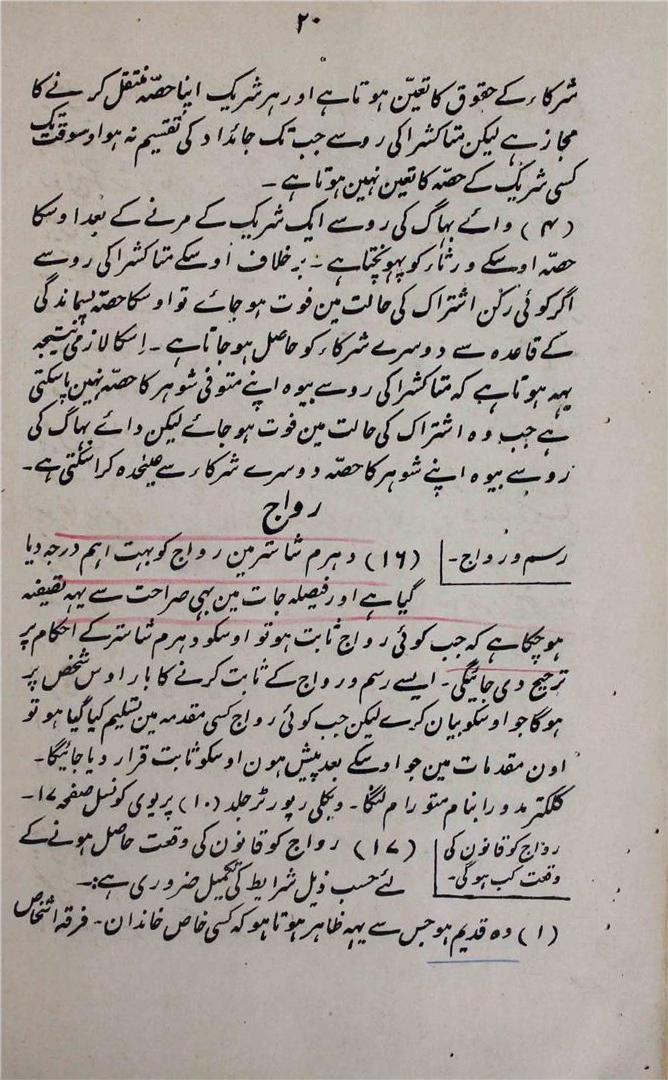 ۲۰
شرکاء کے حقوق کا تعیّن ہوتا ہے اور ہر شریک اپنا حصّہ منتقل کرنے کا
مجاز ہے لیکن متاکشرا کی رو سے جب تک جائداد کی تقسیم نہ ہو اوسوقت تک
کسی شریک کے حصّہ کا تعین نہین ہوتا ہے ۔
(۴) دائے بھاگ کی رو سے ایک شریک کے مرنے کے بعد اوسکا
حصّہ اوسکے ورثاء کو پہونچتا ہے ۔ برخلاف اوسکے متاکشرا کی رو سے
اگر کوئی رکن اشتراک کی حالت مین فوت ہو جائے تو اوسکا حصّہ پسماندگی
کے قاعدہ سے دوسرے شرکاء کو حاصل ہو جاتا ہے ۔ اِسکا لازمی نتیجہ
یہہ ہوتا ہے کہ متاکشرا کی رو سے بیوہ اپنے متوفی شوہر کا حصّہ نہین پا سکتی
ہے جب وہ اشتراک کی حالت مین فوت ہو جائے لیکن دائے بھاگ کی
رو سے بیوہ اپنے شوہر کا حصّہ دوسرے شرکاء سے علیحدہ کرا سکتی ہے۔
رواج
رسم و رواج۔ (۱۶) دہرم شاستر مین رواج کو بہت اہم درجہ دیا
گیا ہے اور فیصلہ جات مین بہی صراحت سے یہہ تصفیہ
ہو چکا ہے کہ جب کوئی رواج ثابت ہو تو اوسکو دہرم شاستر کے احکام پر
ترجیح دی جائیگی۔ ایسے رسم و رواج کے ثابت کرنے کا بار اوس شخص پر
ہوگا جو اوسکو بیان کرے لیکن جب کوئی رواج کسی مقدمہ مین تسلیم کیا گیا ہو تو
اون مقدمات مین جو اوسکے بعد پیش ہون اوسکو ثابت قرار دیا جائیگا۔
کلکٹر مدورا بنام متورام لنگا۔ ویکلی رپورٹر جلد (۱۰) پریوی کونسل صفحہ ۱۷۔
رواج کو قانون کی (۱۷) رواج کو قانون کی وقعت حاصل ہونے کے
وقعت کب ہوگی۔ لئے حسب ذیل شرایط کی تکمیل ضروری ہے:۔
(۱) وہ قدیم ہو جس سے یہہ ظاہر ہوتا ہو کہ کسی خاص خاندان۔ فرقہ اشخاص